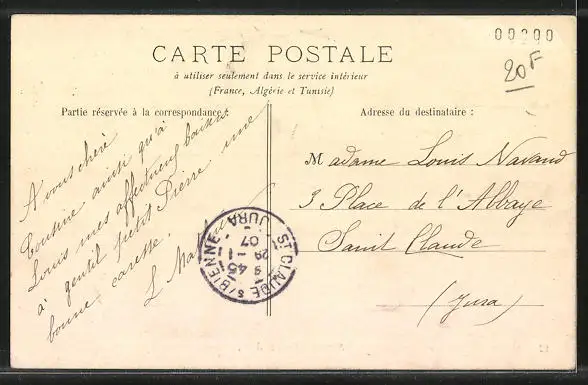 00290
20F
CARTE POSTALE
à utiliser seulement dans le service intérieur
(France, Algérie et Tunisie)
Partie réservée à la correspondance :
Adresse du destinataire :
A vous chère
Cousine ainsi qu'à
Louis mes affectueux baisers
à gentil petit Pierre une
bonne caresse.
L
Madame Louis Navand
3 Place de l'Abbaye
Saint Claude
(Jura)
ST CLAUDE S/BIENNE
JURA
9 45
29 - 1
07